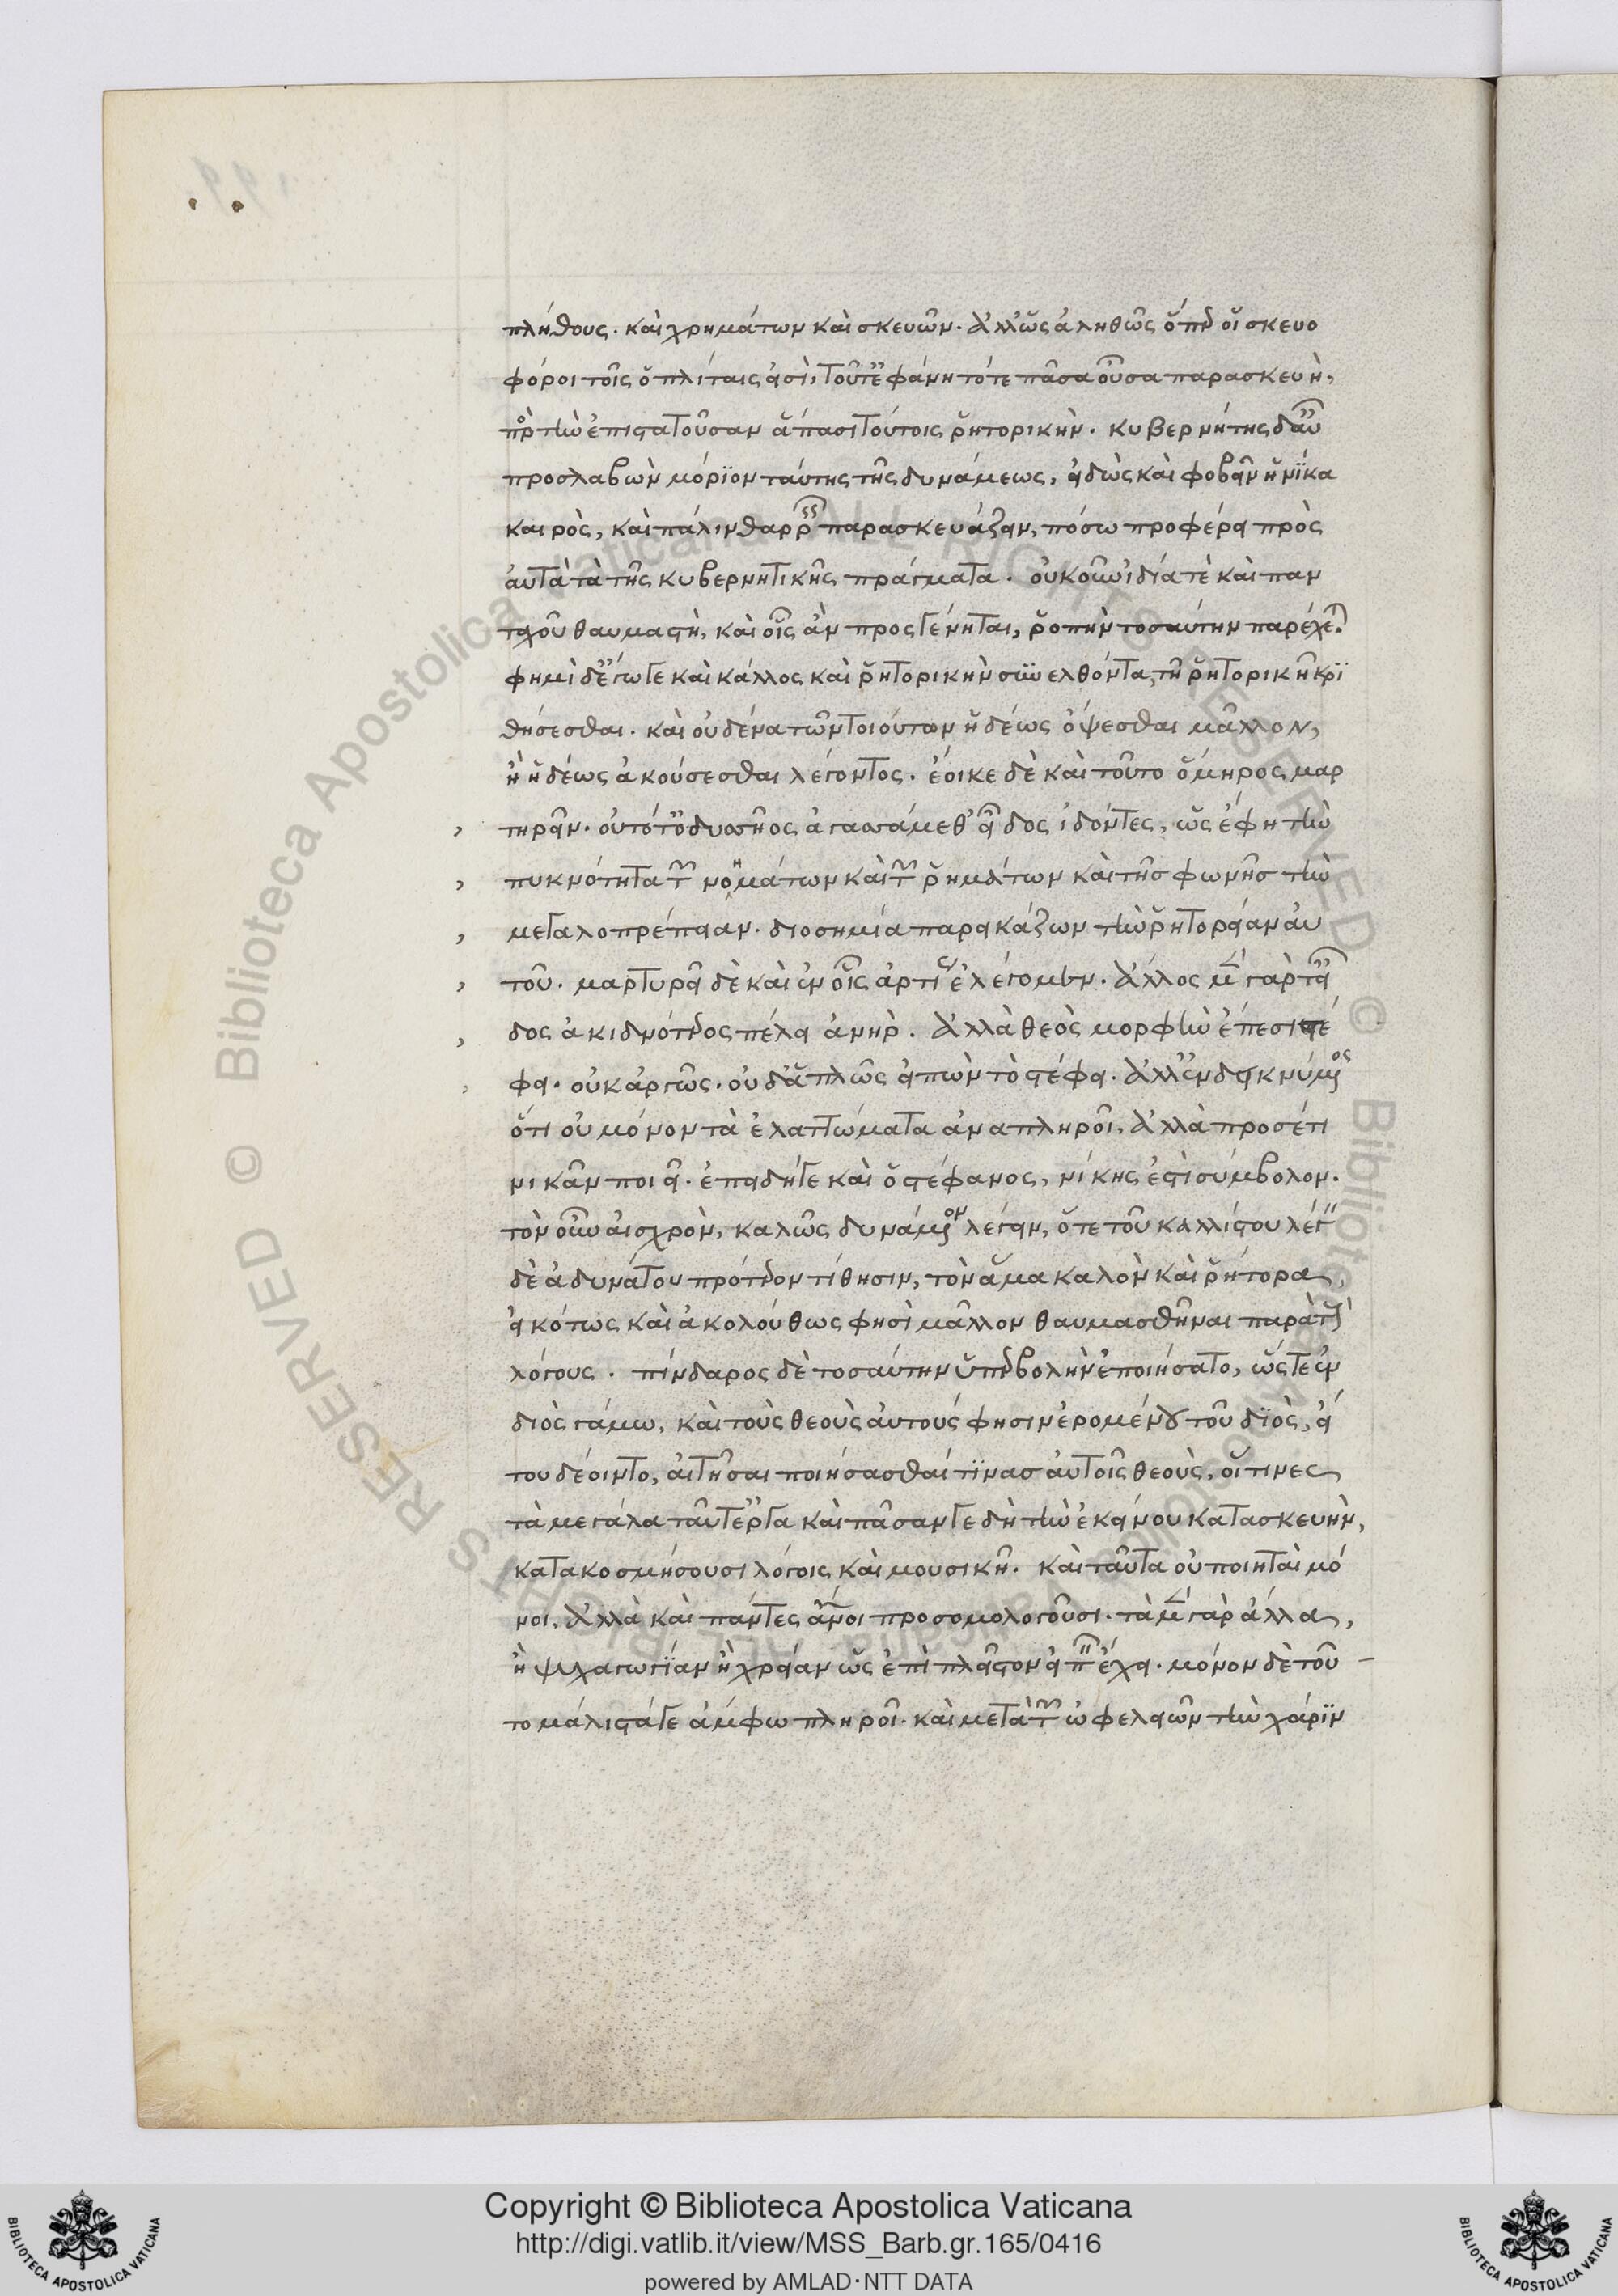 πλήθους. καὶ χρημάτων καὶ σκευῶν. ἀλλ' ὡς ἀληθῶς ὅπερ οἱ σκευο
φόροι τοῖς ὁπλίταις εἰσὶ, τοῦτ' ἐφάνη τότε πᾶσα οὖσα παρασκευὴ,
πρὸς τὴν ἐπιστατοῦσαν ἅπασι τούτοις ῥητορικὴν. κυβερνήτης δ' αὖ
προσλαβὼν μόριον ταύτης τῆς δυνάμεως, εἰδὼς καὶ φοβεῖν ἡνίκα
καιρὸς, καὶ πάλιν θαρρεῖν παρασκευάζειν, πόσω προφέρει πρὸς
αὐτὰ τὰ τῆς κυβερνητικῆς πράγματα. οὐκοῦν ἰδία τὲ καὶ παν
ταχοῦ θαυμαστὴ, καὶ οἷς ἂν προσγένηται, ῥοπὴν τοσαύτην παρέχεται.
φημὶ δ' ἔγωγε καὶ κάλλος καὶ ῥητορικὴν συνελθόντα, τῇ ῥητορικῇ κρι
θήσεσθαι. καὶ οὐδένα τῶν τοιούτων ἡδέως ὄψεσθαι μᾶλλον,
ἢ ἡδέως ἀκούσεσθαι λέγοντος. ἔοικε δὲ καὶ τοῦτο ὅμηρος μαρ
τηρεῖν. οὐ τότ' ὀδυσῆος ἀγασσάμεθ' εἶδος ἰδόντες, ὡς ἔφη τὴν
πυκνότητα τῶν νοημάτων καὶ τῶν ῥημάτων καὶ τῆς φωνῆς τὴν
μεγαλοπρέπειαν. διοσημία παρεικάζων τὴν ῥητορείαν αὐ
τοῦ. μαρτυρεῖ δὲ καὶ ἐν οἷς ἀρτίως ἐλέγομεν. ἄλλος μὲν γὰρ τ' εἶ
δος ἀκιδνότερος πέλει ἀνὴρ. ἀλλὰ θεὸς μορφὴν ἔπεσι στέ
φει. οὐκ ἀργῶς. οὐδ' ἁπλῶς εἰπὼν τὸ στέφει. ἀλλ' ἐνδεικνύμενος
ὅτι οὐ μόνον τὰ ἐλαττώματα ἀναπληροῖ, ἀλλὰ προσέτι
νικᾶν ποιεῖ. ἐπειδήγε καὶ ὁ στέφανος, νίκης ἐστὶ σύμβολον.
τὸν οὖν αἰσχρὸν, καλῶς δυνάμενον λέγειν, ὅτε τοῦ καλλίστου λέγειν
δὲ ἀδυνάτου πρότερον τίθησιν, τὸν ἅμα καλὸν καὶ ῥήτορα,
εἰκότως καὶ ἀκολούθως φησὶ μᾶλλον θαυμασθῆναι παρὰ τοὺς
λόγους. πίνδαρος δὲ τοσαύτην ὑπερβολὴν ἐποιήσατο, ὥστε ἐν
διὸς γάμω, καὶ τοὺς θεοὺς αὐτούς φησιν ἐρομένου τοῦ διὸς, εἴ
του δέοιντο, αἰτῆσαι ποιήσασθαί τινας αὐτοῖς θεοὺς, οἵτινες
τὰ μεγάλα ταῦτ' ἔργα καὶ πᾶσαν γε δὴ τὴν ἐκείνου κατασκευὴν,
κατακοσμήσουσι λόγοις καὶ μουσικῇ. καὶ ταῦτα οὐ ποιηταὶ μό
νοι, ἀλλὰ καὶ πάντες ἄνθρωποι προσομολογοῦσι. τὰ μὲν γὰρ ἄλλα,
ἢ ψυχαγωγίαν ἢ χρείαν ὡς ἐπὶ πλεῖστον εἰπεῖν ἔχει. μόνον δὲ τοῦ
το μάλιστάγε ἄμφω πληροῖ. καὶ μετὰ τῶν ὠφελειῶν τὴν χάριν
Copyright © Biblioteca Apostolica Vaticana
http://digi.vatlib.it/view/MSS_Barb.gr.165/0416
powered by AMLAD·NTT DATA
BIBLIOTECA APOSTOLICA VATICANA
BIBLIOTECA APOSTOLICA VATICANA